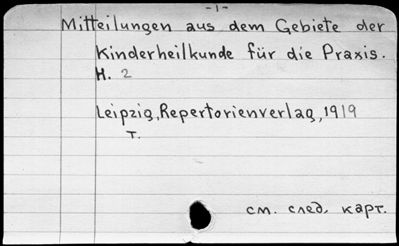 -1-
Mitteilungen aus dem Gebiete der
Kinderheilkunde für die Praxis.
H. 2
Leipzig, Repertorienverlag, 1919
T.
см. след. карт.